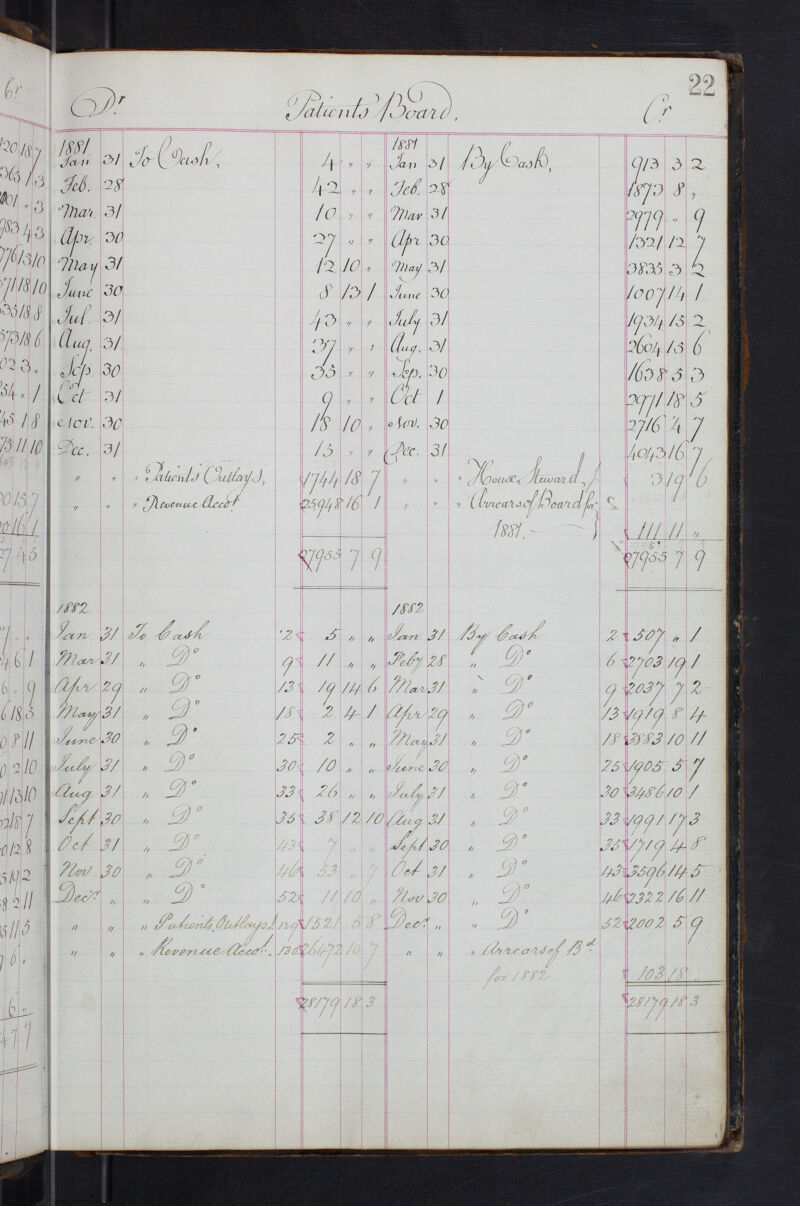 22
Dr. Patients' Board. Cr
1881 1881
Jan 31 To Cash, 4 " " Jan 31 By Cash, 913 3 2
Feb. 28 42 " " Feb. 28 1873 8 "
Mar. 31 10 " " Mar 31 2979 " 9
Apr. 30 27 " " Apr 30 1321 12 7
May 31 12 10 " May 31 3835 3 2
June 30 8 13 1 June 30 1007 14 1
Jul. 31 43 " " July 31 1934 15 2
Aug. 31 37 " " Aug. 31 2604 15 6
Sep. 30 35 " " Sep. 30 1638 5 3
Oct 31 9 " " Oct 1 2971 18 5
Nov. 30 18 10 " Nov. 30 2716 4 7
Dec. 31 15 " " Dec. 31 4043 16 7
" " " Patients' Outlays, 1744 18 7 " " " House Steward, 3 19 6
" " " Revenue Accot. 25948 16 1 " " " Arrears of Board for
1881. 111 11 "
27955 7 9 27955 7 9
1882 1882
Jan 31 To Cash 2 5 " " Jan 31 By Cash 2 507 " 1
Mar 31 " Do 9 11 " " Feby 28 " Do 6 2703 19 1
Apr 29 " Do 13 19 14 6 Mar 31 " Do 9 2037 7 2
May 31 " Do 18 2 4 1 Apr 29 " Do 13 1919 8 4
June 30 " Do 25 2 " " May 31 " Do 18 3883 10 11
July 31 " Do 30 10 " " June 30 " Do 25 1905 5 7
Aug 31 " Do 33 26 " " July 31 " Do 30 3486 10 1
Sept 30 " Do 35 38 12 10 Aug 31 " Do 33 1991 17 3
Oct 31 " Do 43 7 " " Sept 30 " Do 35 1719 4 8
Nov 30 " Do 46 53 " 7 Oct 31 " Do 43 3596 14 5
Decr. " " Do 52 11 10 " Nov 30 " Do 46 2322 16 11
" " " Patients, Outlays. 129 1521 5 8 Decr. " " Do 52 2002 5 9
" " " Revenue Accot. 130 26472 10 7 " " " Arrears of Bd
for 1882 103 18
28179 18 3 28179 18 3